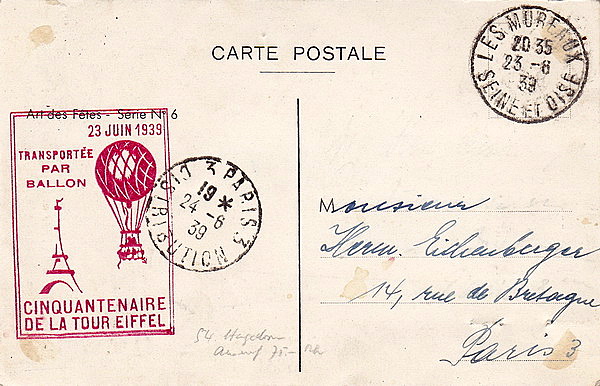 CARTE POSTALE
LES MUREAUX
20 35
23 -6
39
SEINE ET OISE
Art des Fêtes - Série N° 6
23 JUIN 1939
TRANSPORTÉE
PAR
BALLON
CINQUANTENAIRE
DE LA TOUR EIFFEL
PARIS 3
19 *
24 -6
39
DISTRIBUTION
Monsieur
Herm. Eichenberger
14, rue de Bretagne
Paris 3